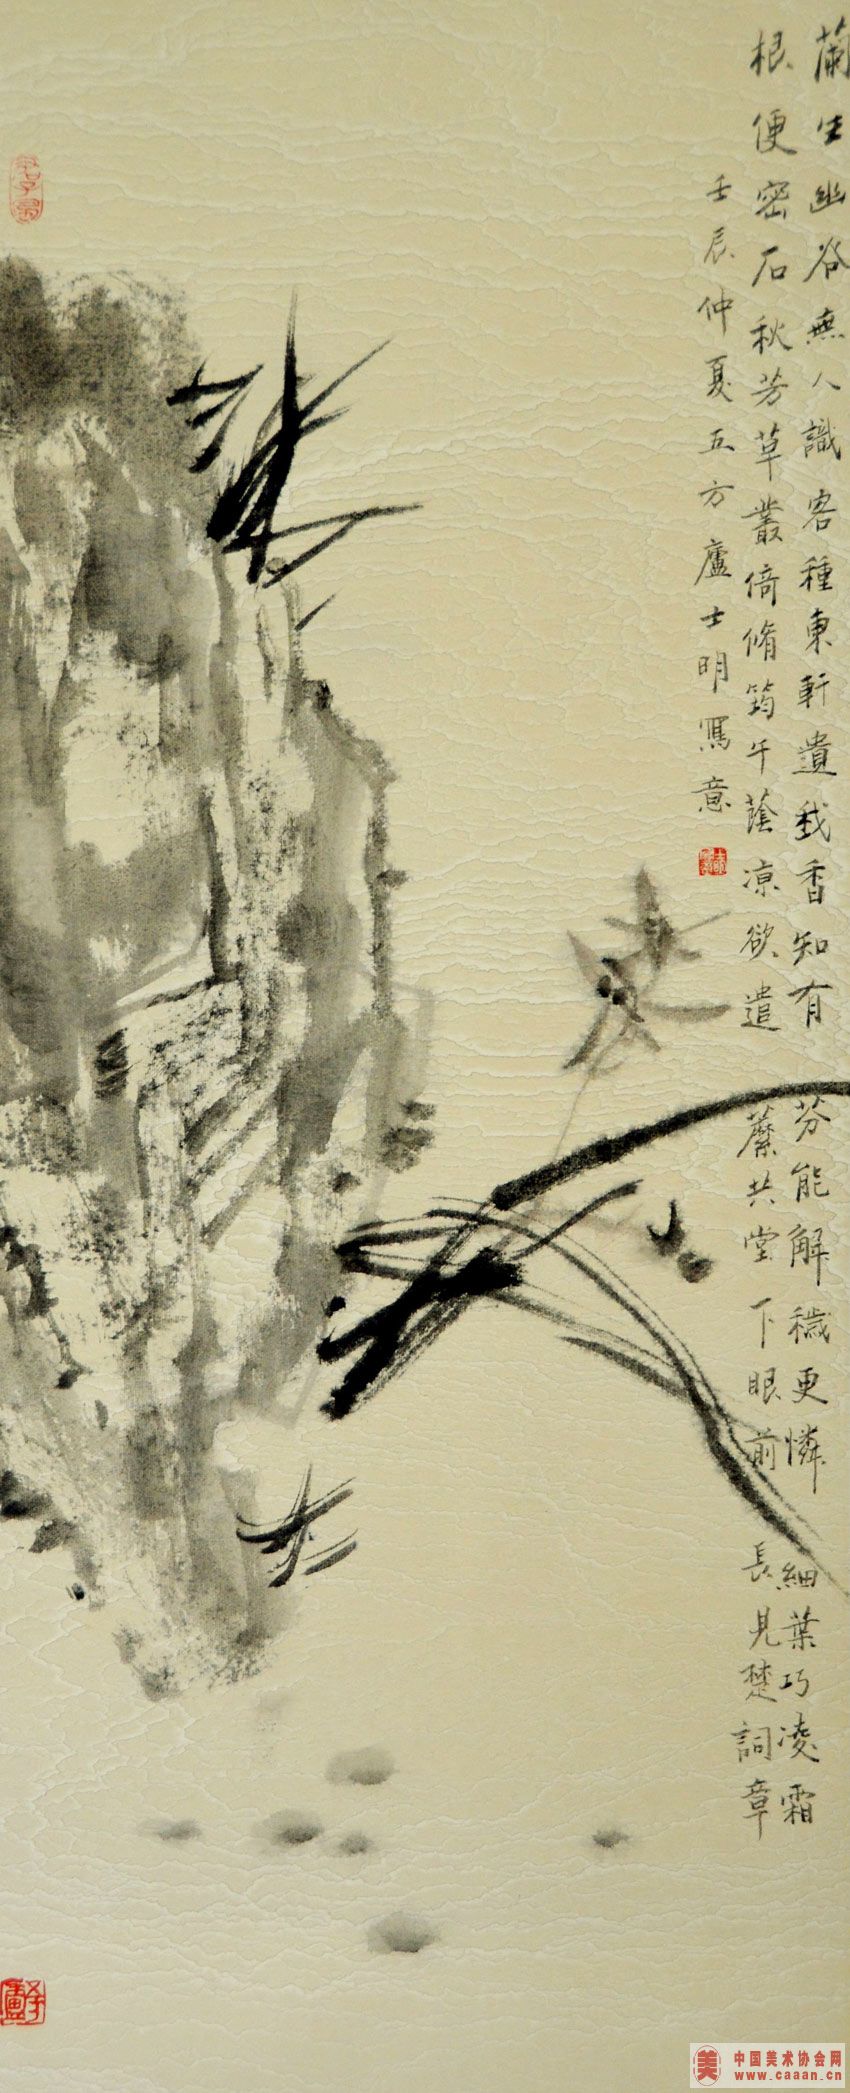 蘭生幽谷無人識客種東軒遺我香知有芬能解穢更憐細葉巧凌霜
根便密石秋芳草叢倚脩筠午蔭凉欲遣蘪共堂下眼前長見楚詞章
壬辰仲夏五方廬士明寫意
中国美术协会网
www.caaan.cn